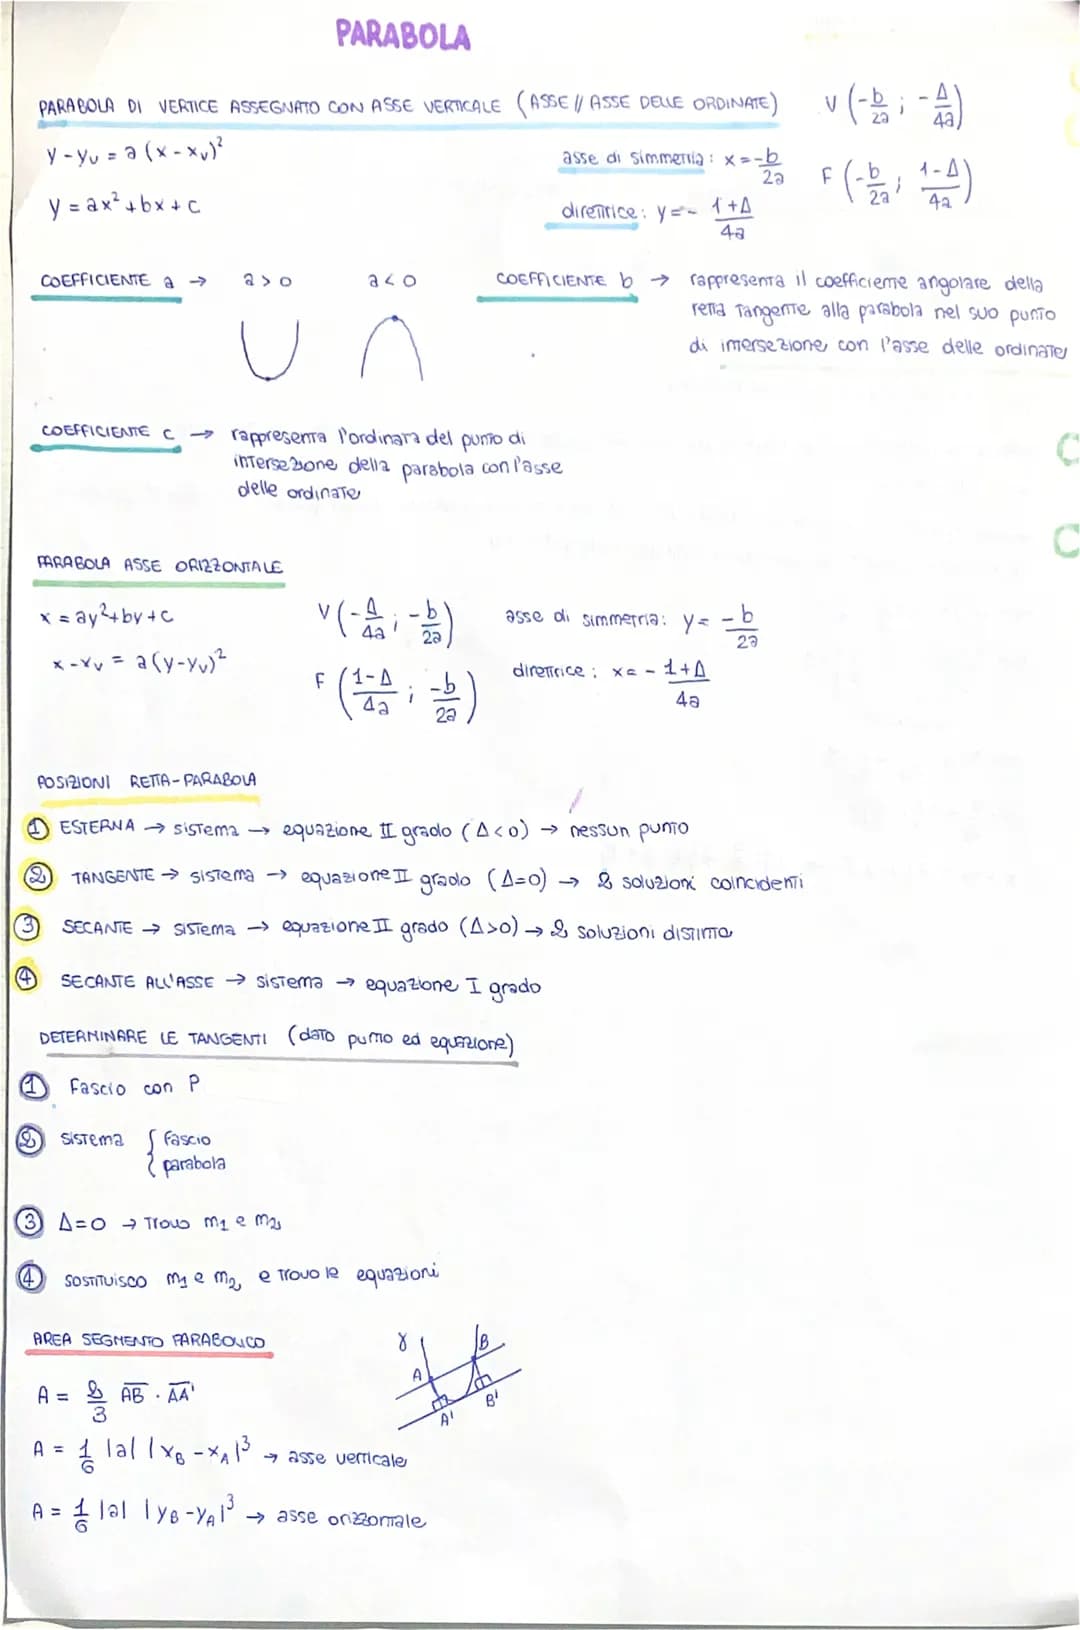 PARABOLA
PARABOLA DI VERTICE ASSEGNATO CON ASSE VERTICALE (ASSE // ASSE DELLE ORDINATE)
V (-b/2a ; -Δ/4a)
y - yv = a (x - xv)²
asse di simmetria : x = -b/2a
F (-b/2a ; 1-Δ/4a)
y = ax² + bx + c
direttrice : y = - 1+Δ/4a
COEFFICIENTE a → a > 0 a < 0
COEFFICIENTE b → rappresenta il coefficiente angolare della
retta tangente alla parabola nel suo punto
di intersezione con l'asse delle ordinate
COEFFICIENTE c → rappresenta l'ordinata del punto di
intersezione della parabola con l'asse
delle ordinate
C
C
PARABOLA ASSE ORIZZONTALE
x = ay² + by + c
V (-Δ/4a ; -b/2a)
asse di simmetria: y = -b/2a
x - xv = a (y - yv)²
F (1-Δ/4a ; -b/2a)
direttrice : x = - 1+Δ/4a
POSIZIONI RETTA-PARABOLA
1 ESTERNA → sistema → equazione II grado (Δ<0) → nessun punto
2 TANGENTE → sistema → equazione II grado (Δ=0) → 2 soluzioni coincidenti
3 SECANTE → sistema → equazione II grado (Δ>0) → 2 soluzioni distinte
4 SECANTE ALL'ASSE → sistema → equazione I grado
DETERMINARE LE TANGENTI (dato punto ed equazione)
1 Fascio con P
2 sistema { fascio
parabola
3 Δ=0 → trovo m1 e m2
4 sostituisco m1 e m2 e trovo le equazioni
AREA SEGMENTO PARABOLICO
γ A B A' B'
A = 2/3 AB · AA'
A = 1/6 |a| |xB - xA|³ → asse verticale
A = 1/6 |a| |yB - yA|³ → asse orizzontale